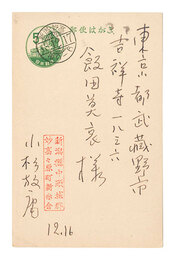 郵便はがき
5
東京都武蔵野市
吉祥寺一八三六
飯田莫哀様
新潟県中頸城郡
妙高々原町新赤倉
小杉放庵
12.16